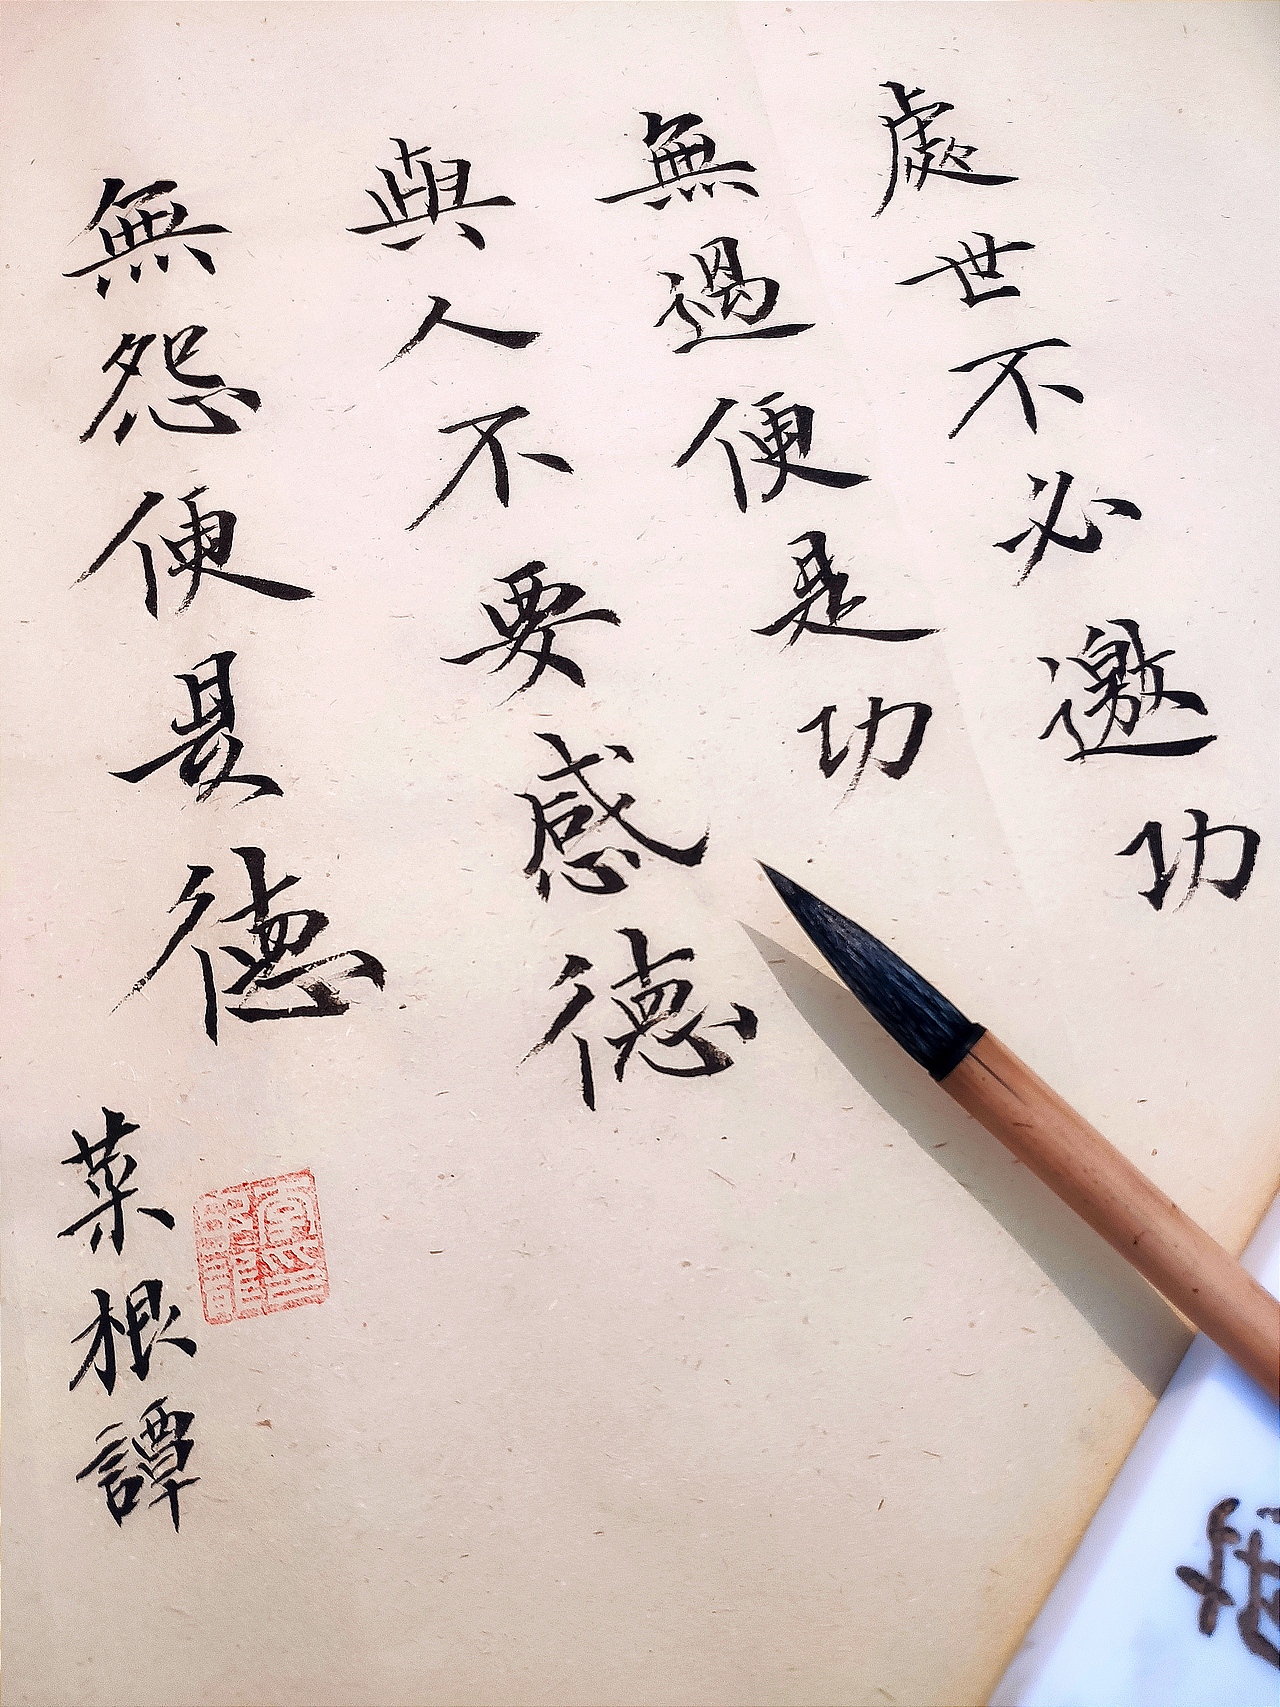 處世不必邀功
無過便是功
與人不要感德
無怨便是德
菜根譚